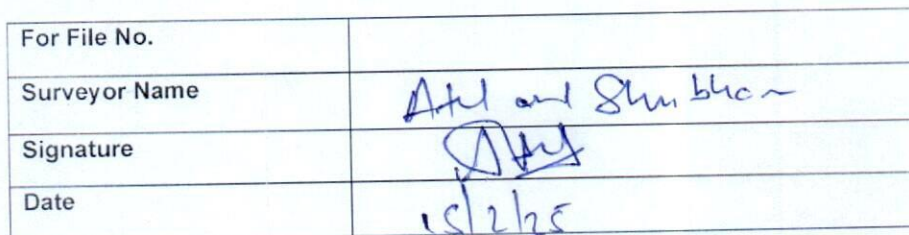 For File No.
Surveyor Name Atul and Shubham
Signature Atul
Date 15/2/25